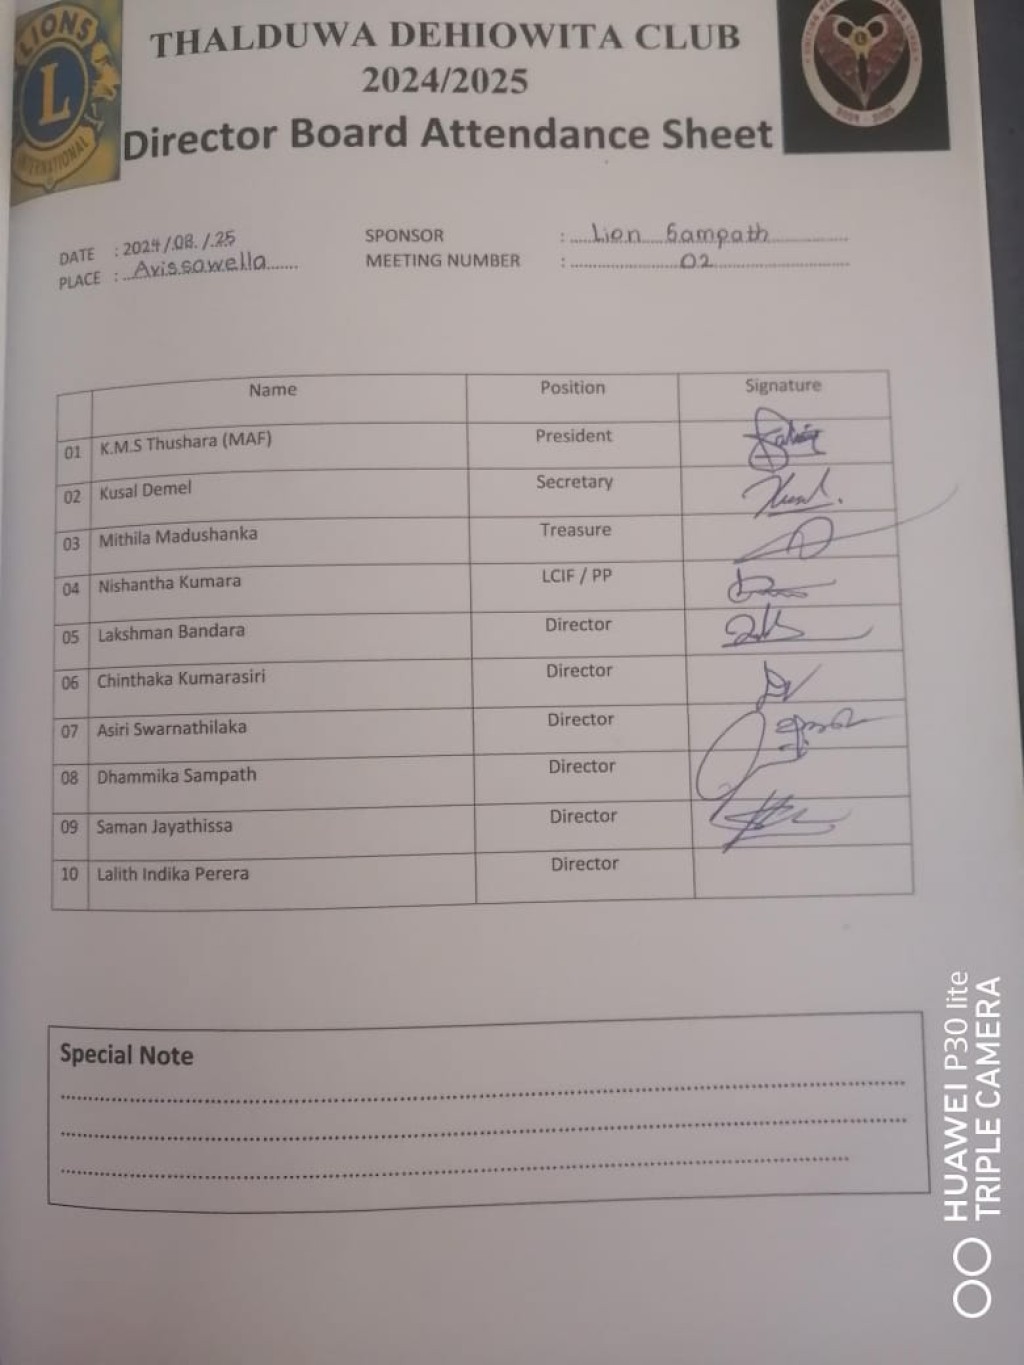 LIONS
L
INTERNATIONAL
THALDUWA DEHIOWITA CLUB
2024/2025
Director Board Attendance Sheet
DATE : 2024/.08./.25
PLACE : Avissawella
SPONSOR : Lion Sampath
MEETING NUMBER : 02
Name Position Signature
01 K.M.S Thushara (MAF) President
02 Kusal Demel Secretary
03 Mithila Madushanka Treasure
04 Nishantha Kumara LCIF / PP
05 Lakshman Bandara Director
06 Chinthaka Kumarasiri Director
07 Asiri Swarnathilaka Director
08 Dhammika Sampath Director
09 Saman Jayathissa Director
10 Lalith Indika Perera Director
Special Note
HUAWEI P30 lite
TRIPLE CAMERA